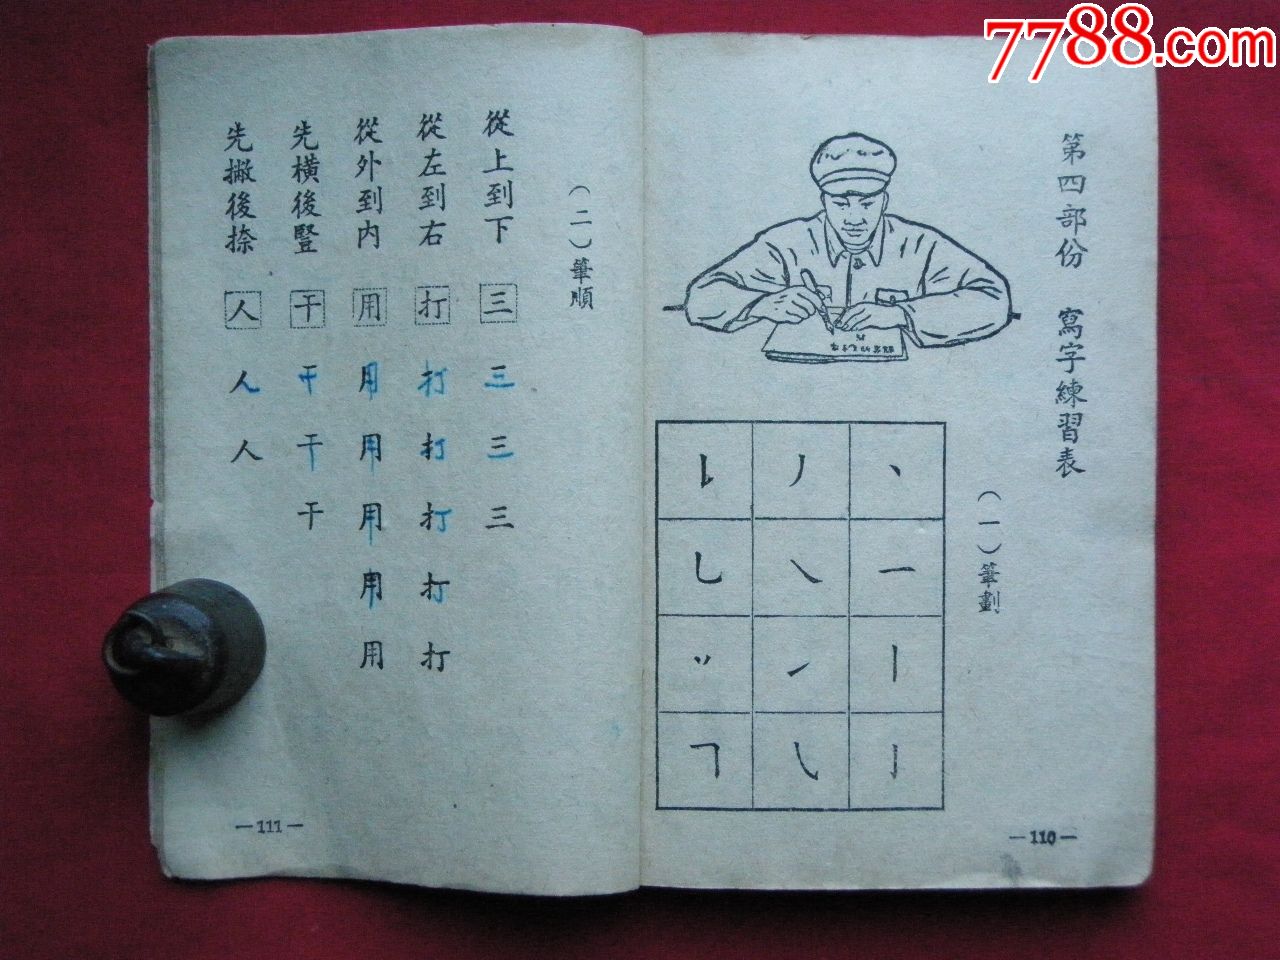 7788.com
第四部份 寫字練習表
(一)筆劃
丶 一 丨 亅
丿 ㇏
—110—
(二)筆順
從上到下 三 三 三 三
從左到右 打 打 打 打 打 打
從外到内 用 用 用 用 用 用
先横後豎 干 干 干 干
先撇後捺 人 人 人
—111—